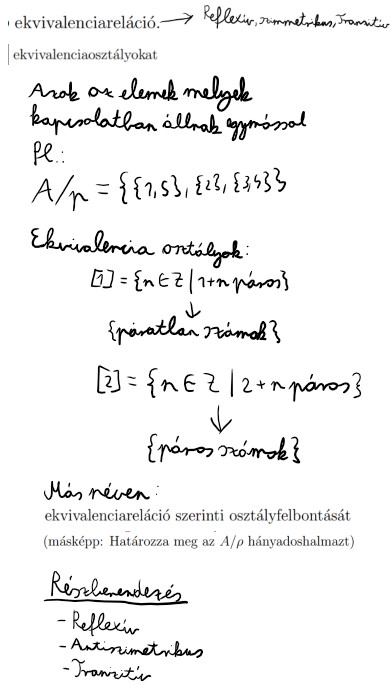 ekvivalenciareláció. → Reflexív, szimmetrikus, Tranzitív
ekvivalenciaosztályokat
Azok az elemek melyek
kapcsolatban állnak egymással
Pl.:
A/ρ = {{1,5}, {2}, {3,4}}
Ekvivalencia osztályok:
[1] = {n ∈ Z | 1+n páros}
↓
{páratlan számok}
[2] = {n ∈ Z | 2+n páros}
↓
{páros számok}
Más néven:
ekvivalenciareláció szerinti osztályfelbontását
(másképp: Határozza meg az A/ρ hányadoshalmazt)
Részbenrendezés
- Reflexív
- Antiszimetrikus
- Tranzitív